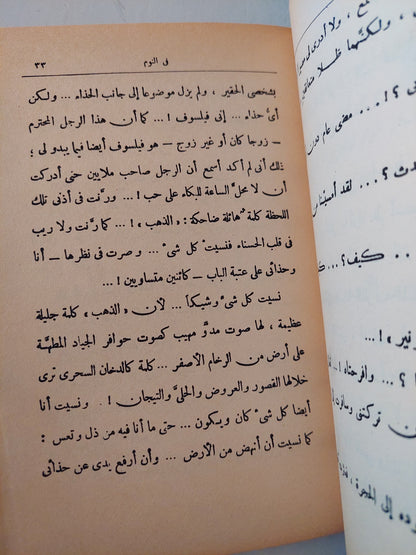 ٣٣ فى النوم
بشخصى الحقير ، ولم يزل موضوعا إلى جانب الحذاء ... ولكن
أىّ حذاء ... إنى فيلسوف ! ... كما أن هذا الرجل المحترم
— زوجا كان أو غير زوج — هو فيلسوف أيضا فيما يبدو لى ؛
ذلك أنى لم أكد أسمع أن الرجل صاحب ملايين حتى أدركت
أن لا محلّ الساعة للبكاء على حب ! ... ورنّت فى أذنى تلك
اللحظة كلمة هائلة ضاحكة : « الذهب » ! ... كما رنّت ولا ريب
فى قلب الحسناء فنسيتْ كل شىء ... وصرت فى نظرها — أنا
وحذائى على عتبة الباب — كائنين متساويين ! ...
نسيت كل شىء وشيكاً ... لأن « الذهب » كلمة جليلة
عظيمة ، لها صوت مدوّ مهيب كصوت حوافر الجياد المطهمة
على أرض من الرخام الأصفر ... كلمة كالدخان السحرى ترى
خلالها القصور والعروض والحلى والتيجان ! ... ونسيت أنا
أيضا كل شىء كان ويكون ... حتى ما أنا فيه من ذل وتعس :
كما نسيت أن أنهض من الأرض ... وأن أرفع يدى عن حذائى
ولا أدرى
ولكنّها
مضى عام
لقد أمسيتا
كيف ؟ ! ...
وافرحتاه
تركتنى
إلى الحجرة